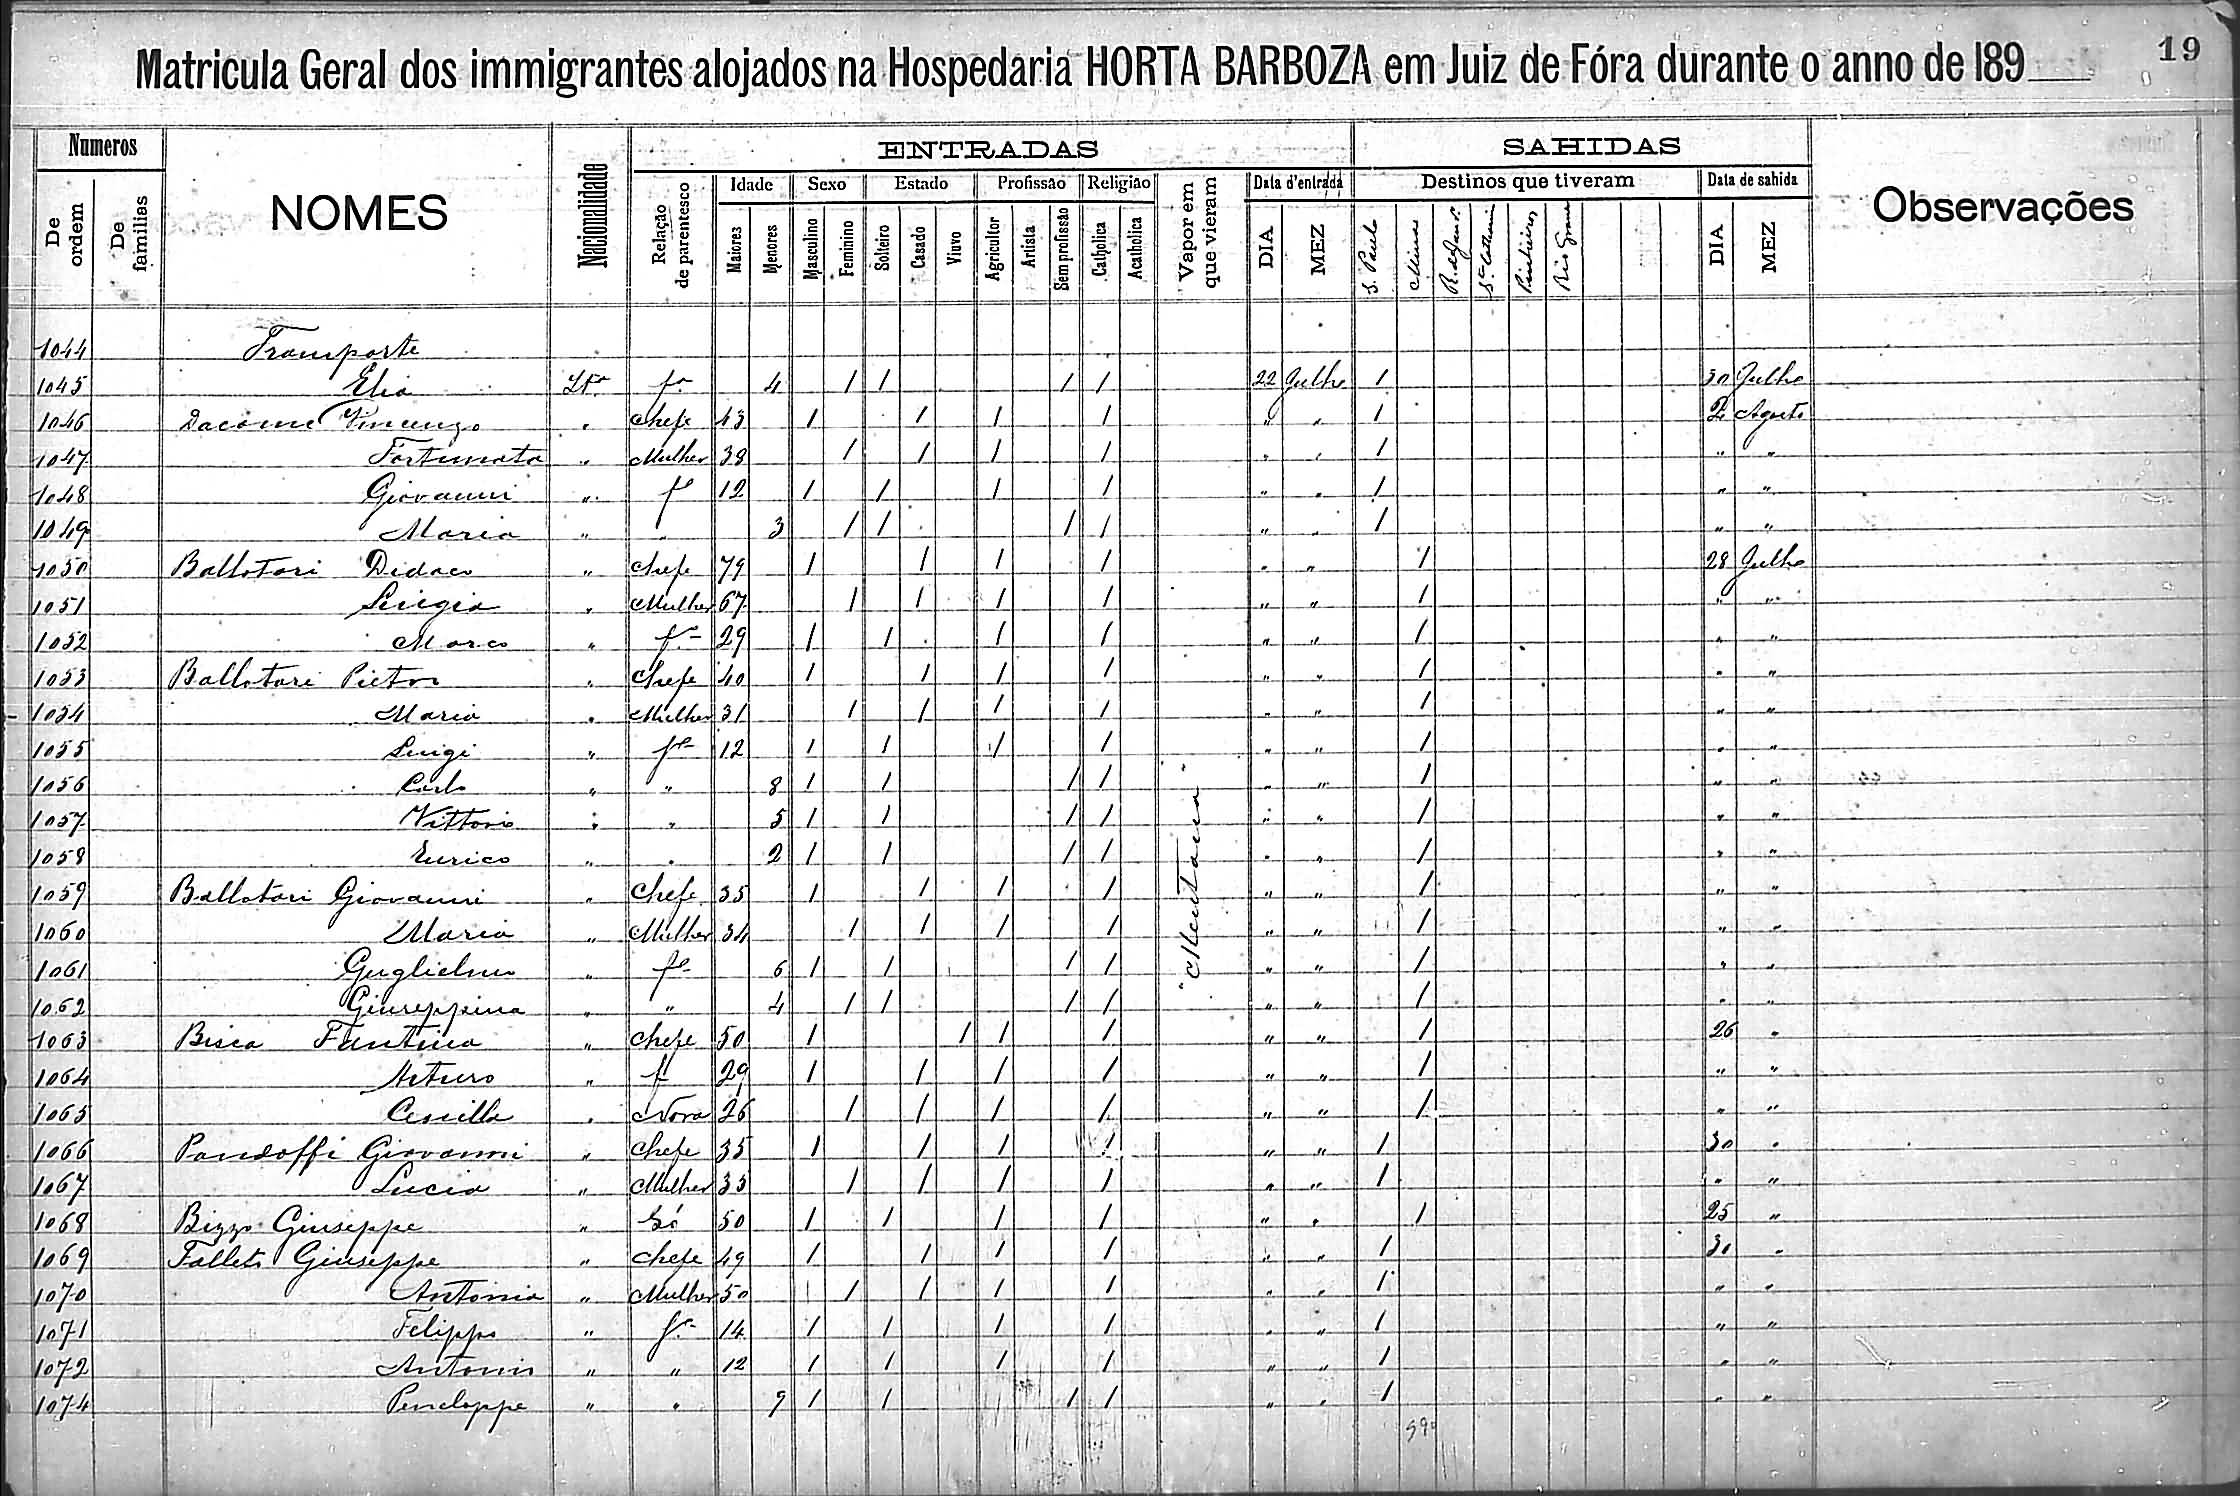 Matricula Geral dos immigrantes alojados na Hospedaria HORTA BARBOZA em Juiz de Fóra durante o anno de 189
19
Numeros NOMES Nacionalidade ENTRADAS SAHIDAS Observações
Idade Sexo Estado Profissão Religião Data d'entrada Destinos que tiveram Data de sahida
De ordem De familias Relação de parentesco Maiores Menores Masculino Feminino Solteiro Casado Viuvo Agricultor Artista Sem profissão Catholica Acatholica Vapor em que vieram DIA MEZ S. Paulo Minas Rio Grande DIA MEZ
1044 Transporte
1045 Elia Ita fa 4 1 1 1 1 22 Julho 1 30 Julho
1046 Dacome Vincenzo " Chefe 43 1 1 1 1 " " 1 2 Agosto
1047 Fortunata " Mulher 38 1 1 1 1 " " 1 " "
1048 Giovanni " fo 12 1 1 1 1 " " 1 " "
1049 Maria " " 3 1 1 1 1 " " 1 " "
1050 Ballotari Didaco " Chefe 79 1 1 1 1 " " 1 28 Julho
1051 Luigia " Mulher 67 1 1 1 1 " " 1 " "
1052 Marco " fo 29 1 1 1 1 " " 1 " "
1053 Ballotari Pietro " Chefe 40 1 1 1 1 " " 1 " "
1054 Maria " Mulher 31 1 1 1 1 " " 1 " "
1055 Luigi " fo 12 1 1 1 1 " " 1 " "
1056 Carlo " " 8 1 1 1 1 " " 1 " "
1057 Vittorio " " 5 1 1 1 1 " " 1 " "
1058 Enrico " " 2 1 1 1 1 " " 1 " "
1059 Ballotari Giovanni " Chefe 35 1 1 1 1 " " 1 " "
1060 Maria " Mulher 34 1 1 1 1 " " 1 " "
1061 Guglielmo " fo 6 1 1 1 1 " " 1 " "
1062 Giuseppina " " 4 1 1 1 1 " " 1 " "
1063 Bisca Fantino " Chefe 50 1 1 1 1 " " 1 26 "
1064 Arturo " f 29 1 1 1 1 " " 1 " "
1065 " Nora 26 1 1 1 1 " " 1 " "
1066 Pandoffi Giovanni " Chefe 35 1 1 1 1 " " 1 30 "
1067 Lucia " Mulher 35 1 1 1 1 " " 1 " "
1068 Bizzo Giuseppe " Só 50 1 1 1 1 " " 1 25 "
1069 Falleti Giuseppe " Chefe 49 1 1 1 1 " " 1 30 "
1070 Antonia " Mulher 50 1 1 1 1 " " 1 " "
1071 Filippo " fo 14 1 1 1 1 " " 1 " "
1072 Antonio " " 12 1 1 1 1 " " 1 " "
1074 Peneloppe " " 9 1 1 1 1 " " 1 " "
"Mentana"